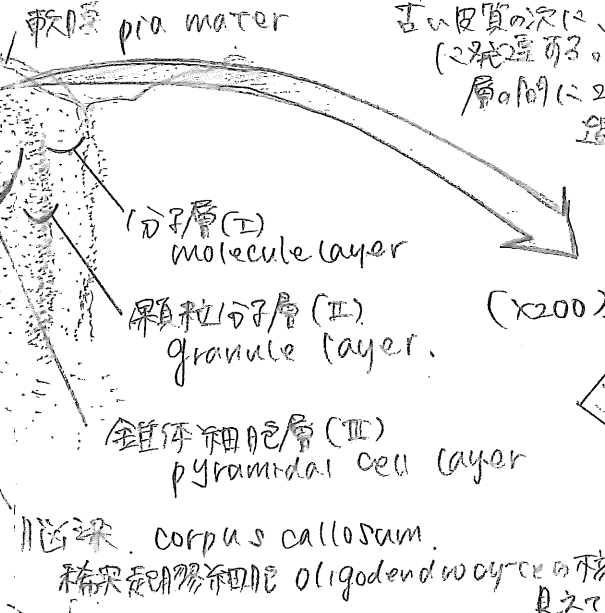 軟膜 pia mater
古い皮質の次に、
に発達する。
層の間に2
分子層(I)
molecule layer
顆粒分子層(II)
granule layer.
(×200)
錐体細胞層(III)
pyramidal cell layer
脳梁. corpus callosum.
稀突起膠細胞 oligodendrocyteの核
見えて